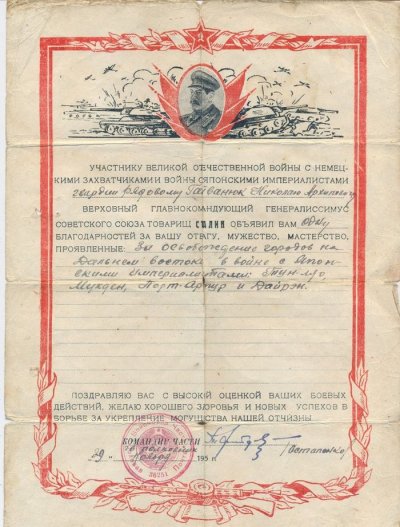 УЧАСТНИКУ ВЕЛИКОЙ ОТЕЧЕСТВЕННОЙ ВОЙНЫ С НЕМЕЦ-
КИМИ ЗАХВАТЧИКАМИ И ВОЙНЫ С ЯПОНСКИМИ ИМПЕРИАЛИСТАМИ
гвардии рядовому Гайванюк Николаю Архиповичу
ВЕРХОВНЫЙ ГЛАВНОКОМАНДУЮЩИЙ ГЕНЕРАЛИССИМУС
СОВЕТСКОГО СОЮЗА ТОВАРИЩ СТАЛИН ОБЪЯВИЛ ВАМ одну
БЛАГОДАРНОСТЕЙ ЗА ВАШУ ОТВАГУ, МУЖЕСТВО, МАСТЕРСТВО,
ПРОЯВЛЕННЫЕ: За освобождение городов на
Дальнем востоке в войне с Япон-
скими империалистами: Тун-ляо
Мукден, Порт-Артур и Дайрэн.
ПОЗДРАВЛЯЮ ВАС С ВЫСОКОЙ ОЦЕНКОЙ ВАШИХ БОЕВЫХ
ДЕЙСТВИЙ, ЖЕЛАЮ ХОРОШЕГО ЗДОРОВЬЯ И НОВЫХ УСПЕХОВ В
БОРЬБЕ ЗА УКРЕПЛЕНИЕ МОГУЩЕСТВА НАШЕЙ ОТЧИЗНЫ
КОМАНДИР ЧАСТИ
(Остапенко)
195 г.